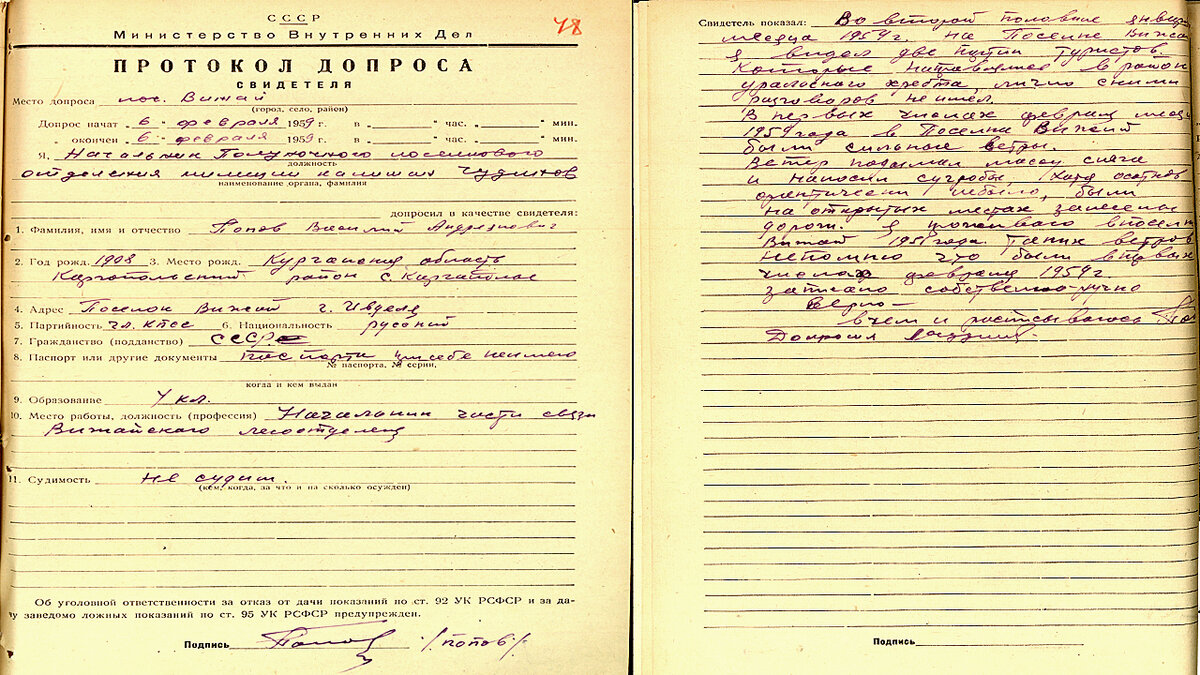 48
СССР
Министерство Внутренних Дел
ПРОТОКОЛ ДОПРОСА
СВИДЕТЕЛЯ
Место допроса пос. Вижай
(город, село, район)
Допрос начат 6 " февраля 1959 г. в " час. " мин.
" окончен 6 " февраля 1959 г. в " час. " мин.
Я, Начальник Полуночного поселкового
должность
отделения милиции капитан Чудинов
наименование органа, фамилия
допросил в качестве свидетеля:
1. Фамилия, имя и отчество Попов Василий Андреянович
2. Год рожд. 1908 3. Место рожд. Курганская область
Каргопольский район с. Каргаполье
4. Адрес Поселок Вижай г. Ивделя
5. Партийность чл. КПСС 6. Национальность русский
7. Гражданство (подданство) СССР
8. Паспорт или другие документы паспорта при себе не имею
№ паспорта, № серии,
когда и кем выдан
9. Образование 4 кл.
10. Место работы, должность (профессия) Начальник части связи
Вижайского лесоотделения
11. Судимость не судим.
(кем, когда, за что и на сколько осужден)
Об уголовной ответственности за отказ от дачи показаний по ст. 92 УК РСФСР и за да-
чу заведомо ложных показаний по ст. 95 УК РСФСР предупрежден.
Подпись Попов /попов/
Свидетель показал: Во второй половине январ
месяца 1959 г. на Поселке Вижай
я видел две партии туристов
Которые направлялись в район
уральского хребта, лично с ними
разговоров не имел.
В первых числах февраля меся
1959 года в Поселке Вижай
были сильные ветры.
Ветер поднимал массы снега
и наносил сугробы, хотя осадков
практически небыло, были
на открытых местах занесены
дороги. я проживаю в поселке
Вижай 1951 года. Таких ветров
непомню что были в первых
числах февраля 1959 г.
записано собственно-ручно
Верно —
в чем и расписываюсь
Допросил
Подпись